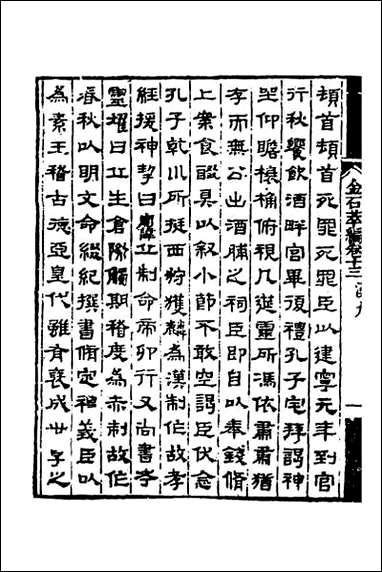 頓首頓首死罪死罪臣以建寧元年到官
行秋饗飲酒畔宮畢復禮孔子宅拜謁神
坐仰瞻榱桷俯視几筵靈所馮依肅肅猶
存而無公出酒脯之祠臣即自以奉錢脩
上案食醊具以叙小節不敢空謁臣伏念
孔子乾川所挺西狩獲麟為漢制作故孝
經援神挈曰玄丘制命帝卯行又尚書考
靈燿曰丘生倉際觸期稽度為赤制故作
春秋以明文命綴紀撰書脩定禮義臣以
為素王稽古德亞皇代雖有褒成世享之
金石萃編卷十三 漢九